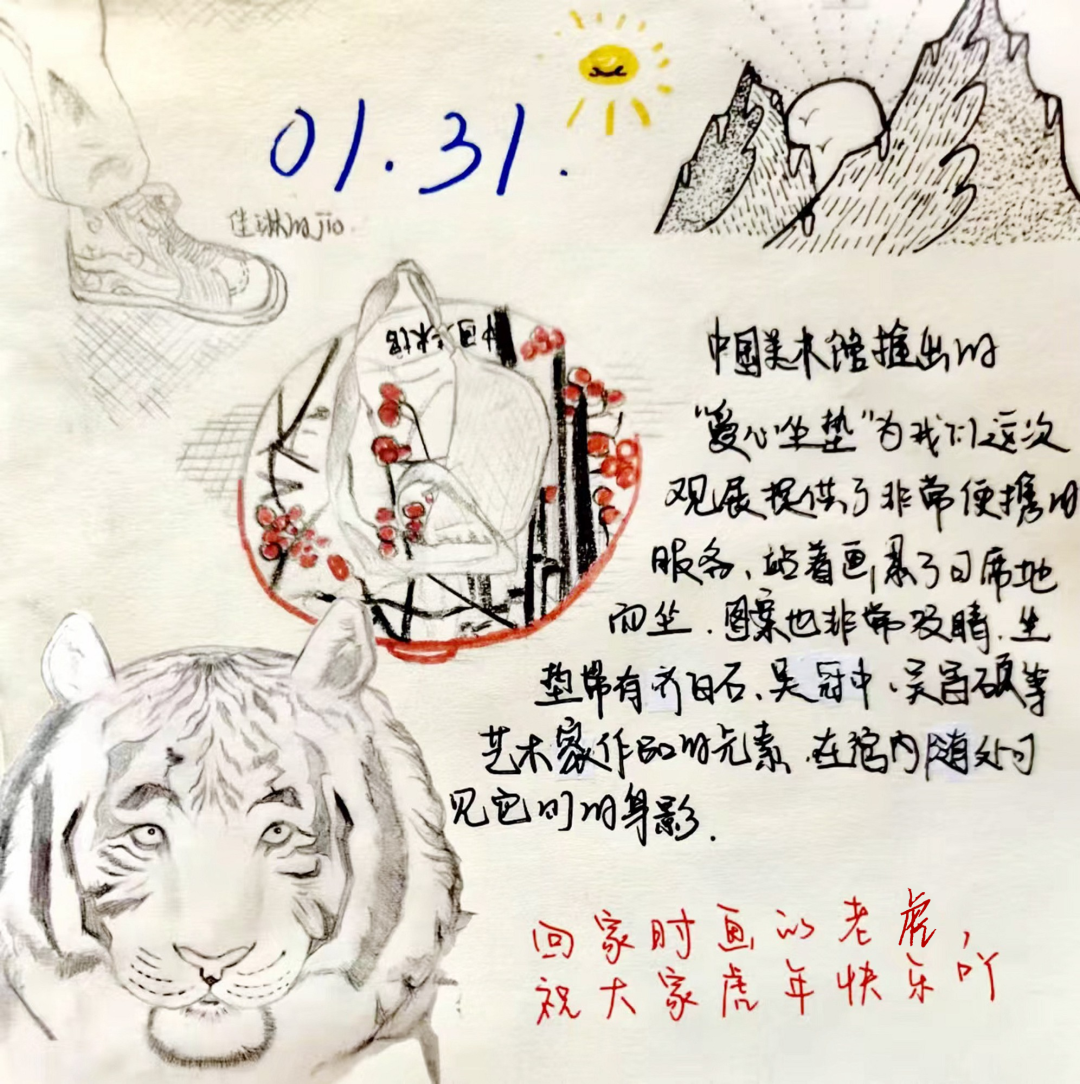 01.31.
佳琳的jio
中国美术馆
中国美术馆推出的
"爱心坐垫"为我们这次
观展提供了非常便携的
服务、站着画,累了可席地
而坐.图案也非常吸睛.坐
垫带有齐白石、吴冠中、吴昌硕等
艺术家作品的元素.在馆内随处可
见它们的身影.
回家时画的老虎,
祝大家虎年快乐吖